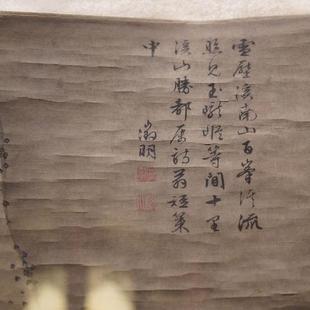 雪壓溪南三百峯溪流
照見玉巃嵸等閒十里
溪山勝都屬詩翁短策
中
徵明